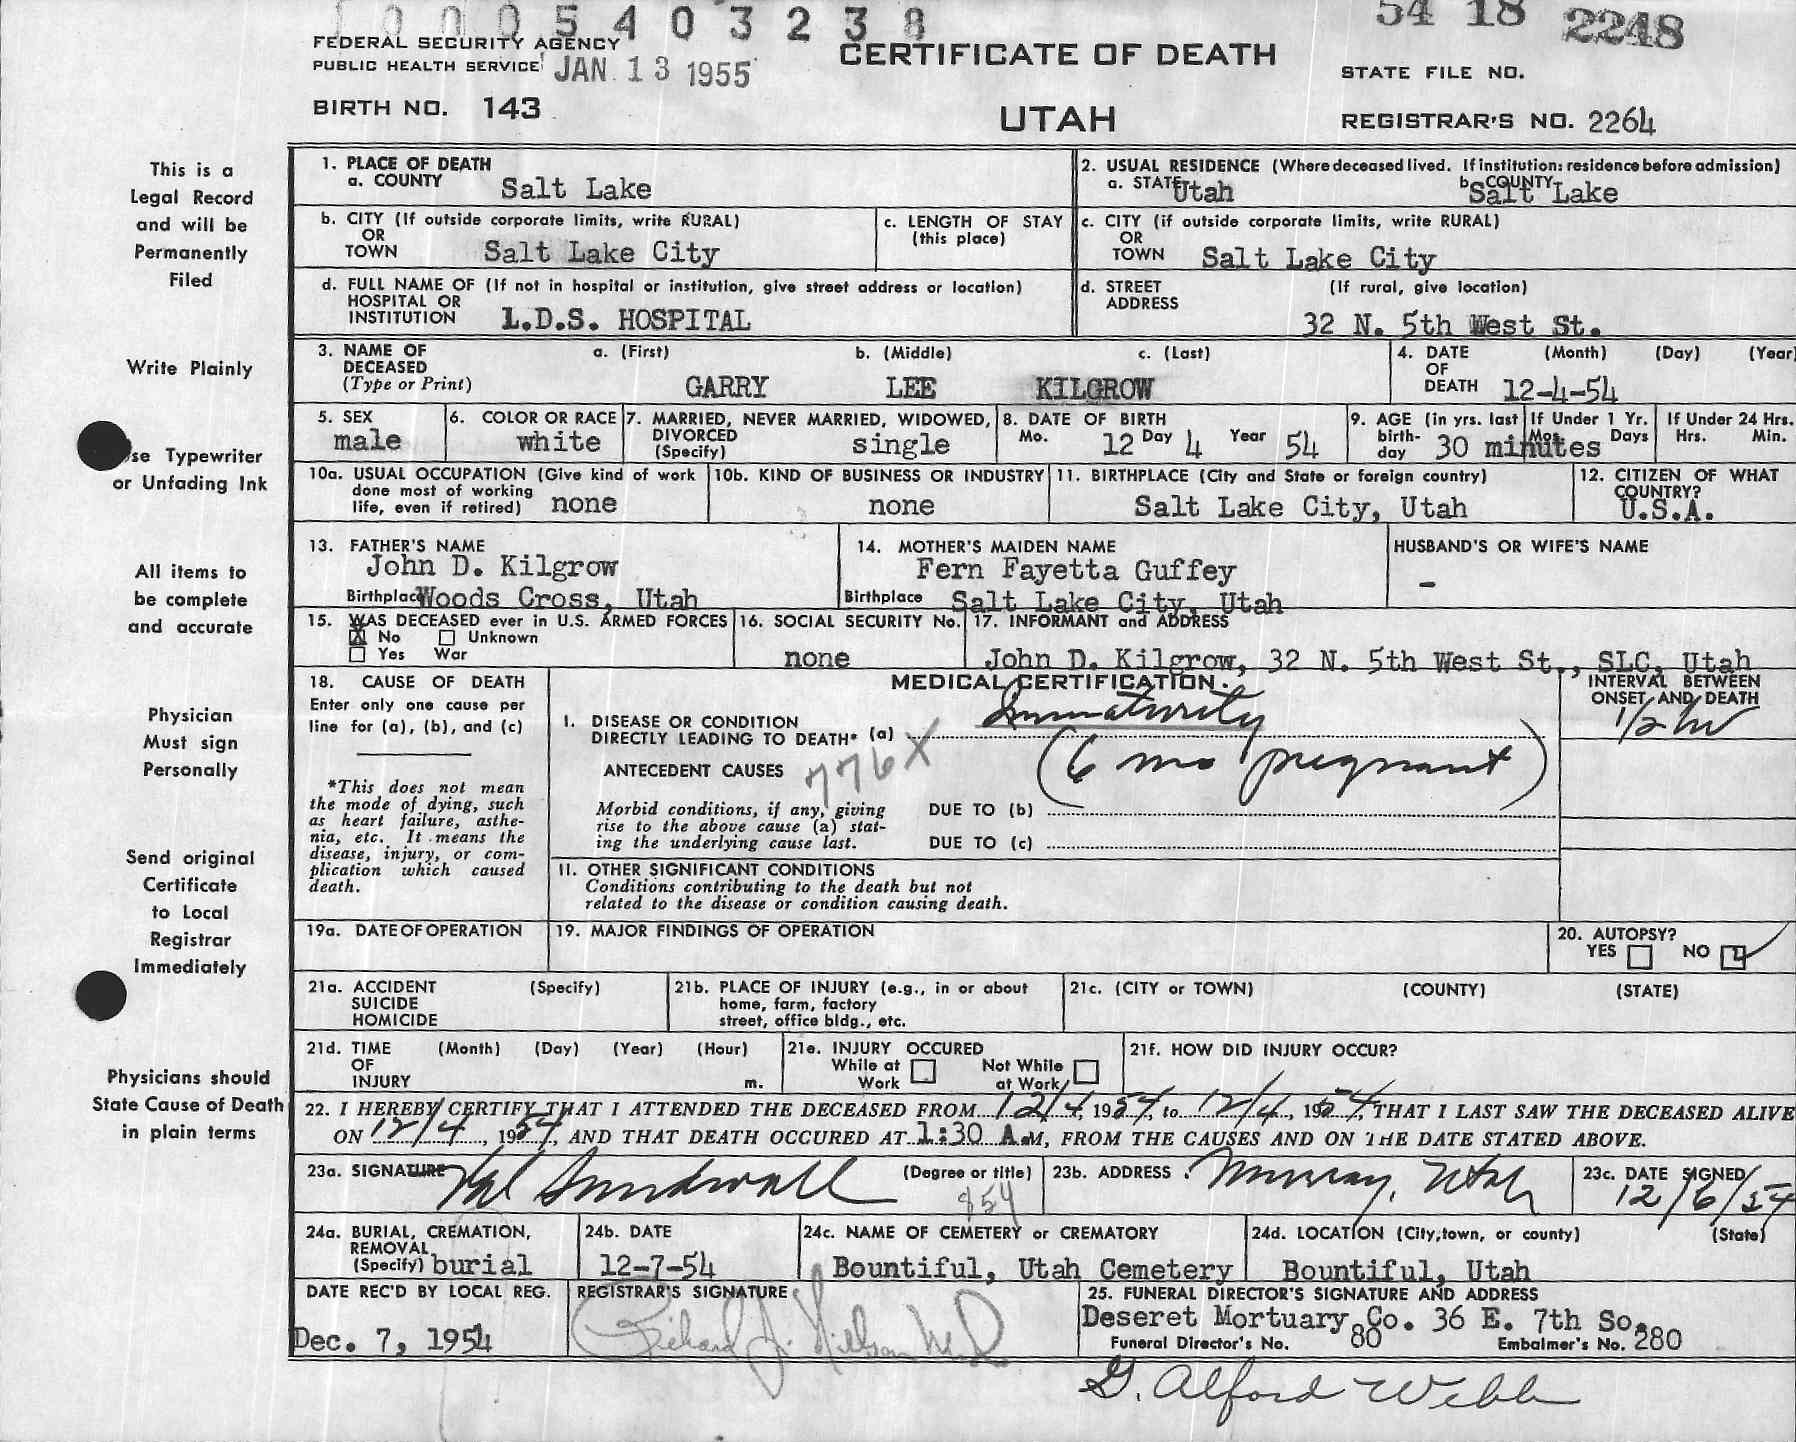 0005403238
54 18 2248
FEDERAL SECURITY AGENCY
PUBLIC HEALTH SERVICE JAN 13 1955
CERTIFICATE OF DEATH
STATE FILE NO.
BIRTH NO. 143
UTAH
REGISTRAR'S NO. 2264
This is a
Legal Record
and will be
Permanently
Filed
Write Plainly
se Typewriter
or Unfading Ink
All items to
be complete
and accurate
Physician
Must sign
Personally
Send original
Certificate
to Local
Registrar
Immediately
Physicians should
State Cause of Death
in plain terms
1. PLACE OF DEATH
a. COUNTY Salt Lake
2. USUAL RESIDENCE (Where deceased lived. If institution: residence before admission)
a. STATE Utah b. COUNTY Salt Lake
b. CITY (If outside corporate limits, write RURAL)
OR
TOWN Salt Lake City
c. LENGTH OF STAY
(this place)
c. CITY (if outside corporate limits, write RURAL)
OR
TOWN Salt Lake City
d. FULL NAME OF (If not in hospital or institution, give street address or location)
HOSPITAL OR
INSTITUTION L.D.S. HOSPITAL
d. STREET (If rural, give location)
ADDRESS
32 N. 5th West St.
3. NAME OF a. (First) b. (Middle) c. (Last)
DECEASED
(Type or Print) GARRY LEE KILGROW
4. DATE (Month) (Day) (Year)
OF
DEATH 12-4-54
5. SEX
male
6. COLOR OR RACE
white
7. MARRIED, NEVER MARRIED, WIDOWED,
DIVORCED
(Specify) single
8. DATE OF BIRTH
Mo. 12 Day 4 Year 54
9. AGE (in yrs. last
birth-
day 30 minutes
If Under 1 Yr.
Mos. Days
If Under 24 Hrs.
Hrs. Min.
10a. USUAL OCCUPATION (Give kind of work
done most of working
life, even if retired) none
10b. KIND OF BUSINESS OR INDUSTRY
none
11. BIRTHPLACE (City and State or foreign country)
Salt Lake City, Utah
12. CITIZEN OF WHAT
COUNTRY?
U.S.A.
13. FATHER'S NAME
John D. Kilgrow
Birthplace Woods Cross, Utah
14. MOTHER'S MAIDEN NAME
Fern Fayetta Guffey
Birthplace Salt Lake City, Utah
HUSBAND'S OR WIFE'S NAME
-
15. WAS DECEASED ever in U.S. ARMED FORCES
X No Unknown
Yes War
16. SOCIAL SECURITY No.
none
17. INFORMANT and ADDRESS
John D. Kilgrow, 32 N. 5th West St., SLC, Utah
18. CAUSE OF DEATH
Enter only one cause per
line for (a), (b), and (c)
*This does not mean
the mode of dying, such
as heart failure, asthe-
nia, etc. It means the
disease, injury, or com-
plication which caused
death.
MEDICAL CERTIFICATION.
I. DISEASE OR CONDITION
DIRECTLY LEADING TO DEATH* (a) Immaturity
(6 mo pregnant)
ANTECEDENT CAUSES 776X
Morbid conditions, if any, giving
rise to the above cause (a) stat-
ing the underlying cause last.
DUE TO (b)
DUE TO (c)
INTERVAL BETWEEN
ONSET AND DEATH
1/2 hr
II. OTHER SIGNIFICANT CONDITIONS
Conditions contributing to the death but not
related to the disease or condition causing death.
19a. DATE OF OPERATION
19. MAJOR FINDINGS OF OPERATION
20. AUTOPSY?
YES NO
21a. ACCIDENT (Specify)
SUICIDE
HOMICIDE
21b. PLACE OF INJURY (e.g., in or about
home, farm, factory
street, office bldg., etc.
21c. (CITY or TOWN) (COUNTY) (STATE)
21d. TIME (Month) (Day) (Year) (Hour)
OF
INJURY m.
21e. INJURY OCCURED
While at Work Not While at Work
21f. HOW DID INJURY OCCUR?
22. I HEREBY CERTIFY THAT I ATTENDED THE DECEASED FROM 12/4, 1954, to 12/4, 1954, THAT I LAST SAW THE DECEASED ALIVE
ON 12/4, 1954, AND THAT DEATH OCCURED AT 1:30 A.M, FROM THE CAUSES AND ON THE DATE STATED ABOVE.
23a. SIGNATURE Val Sundwall (Degree or title)
854
23b. ADDRESS Murray, Utah
23c. DATE SIGNED
12/6/54
24a. BURIAL, CREMATION,
REMOVAL
(Specify) burial
24b. DATE
12-7-54
24c. NAME OF CEMETERY or CREMATORY
Bountiful, Utah Cemetery
24d. LOCATION (City, town, or county) (State)
Bountiful, Utah
DATE REC'D BY LOCAL REG.
Dec. 7, 1954
REGISTRAR'S SIGNATURE
Richard J. M.D.
25. FUNERAL DIRECTOR'S SIGNATURE AND ADDRESS
Deseret Mortuary Co. 36 E. 7th So.
Funeral Director's No. 80 Embalmer's No. 280
G. Alford Webb